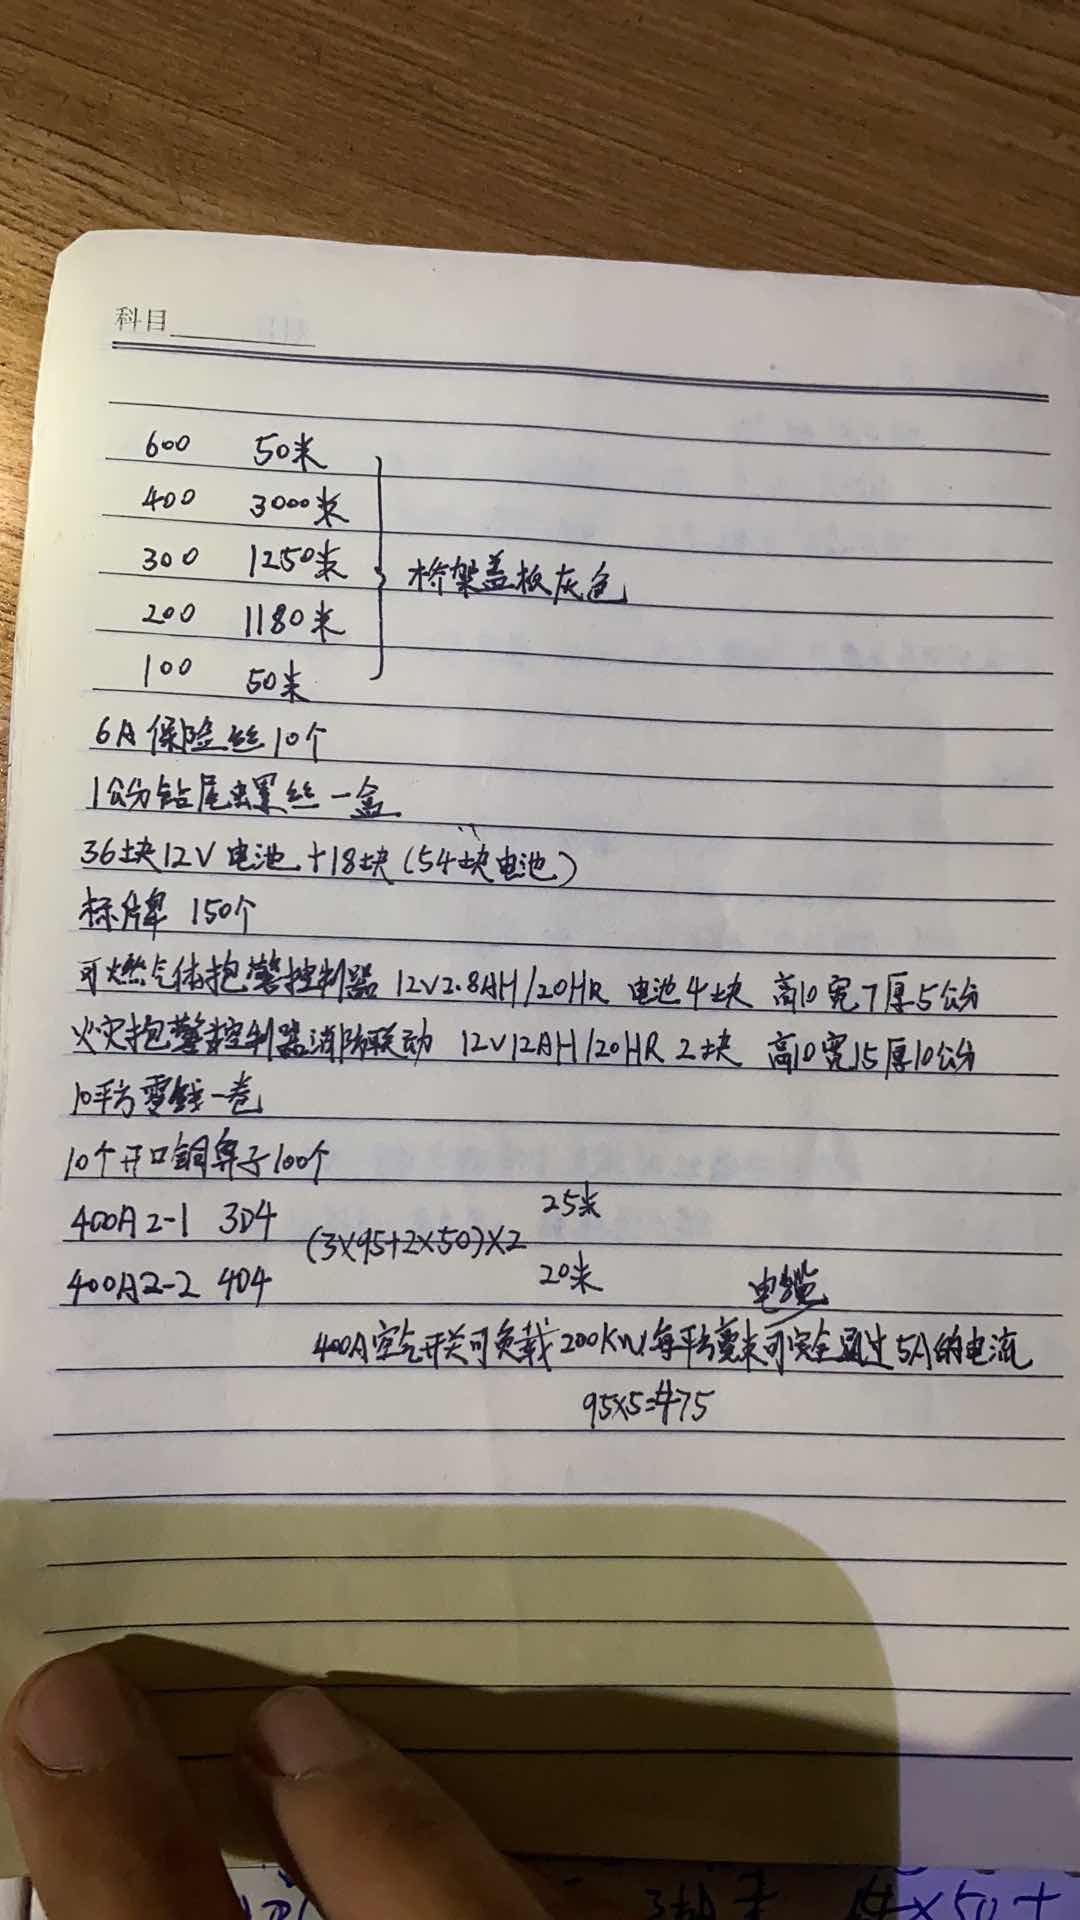 科目
600 50米
400 3000米
300 1250米
桥架盖板灰色
200 1180米
100 50米
6A保险丝10个
1公分钻尾螺丝一盒
36块12V电池+18块(54块电池)
标牌 150个
可燃气体抱警控制器 12V2.8AH/20HR 电池4块 高10宽7厚5公分
火灾抱警控制器消防联动 12V12AH/20HR 2块 高10宽15厚10公分
10平方零线一卷
10个开口铜鼻子100个
400A2-1 3D4 25米
(3×95+2×50)×2
400A2-2 4D4 20米
电缆
400A空气开关可负载200KW,每平方毫米可安全通过5A的电流
95×5=475